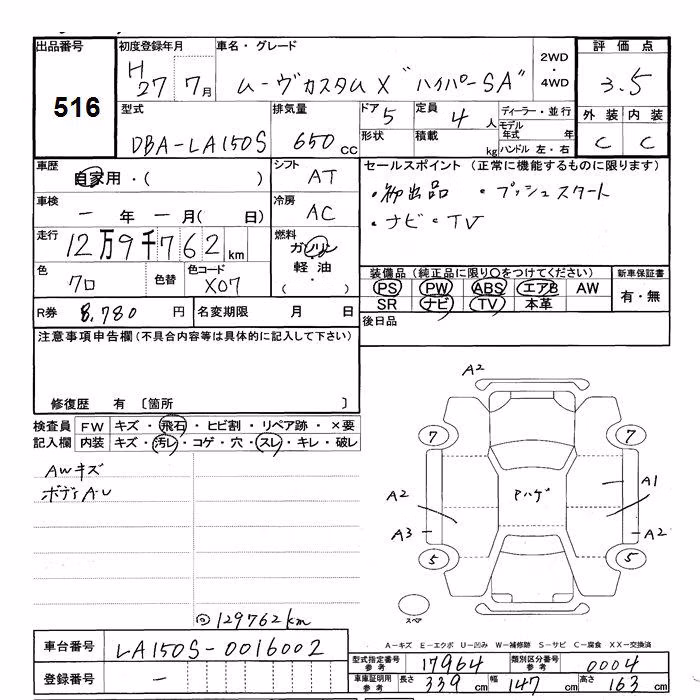 出品番号 初度登録年月 車名・グレード 2WD・4WD 評価点
516 H27 7月 ムーヴカスタムX "ハイパーSA" 3.5
型式 排気量 ドア 5 定員 4人 ディーラー・並行 外装 内装
DBA-LA150S 650cc 形状 積載 kg モデル年式 年 C C
ハンドル 左・右
車歴 自家用・( ) シフト AT セールスポイント (正常に機能するものに限ります)
・初出品 ・プッシュスタート
車検 ー年ー月( 日) 冷房 AC ・ナビ・TV
走行 12万9千762km 燃料 ガソリン
軽油・( )
色 クロ 色替 色コード X07 装備品 (純正品に限り○をつけてください) 新車保証書
PS PW ABS エアB AW 有・無
SR ナビ TV 本革
R券 8,780円 名変期限 月 日 後日品
注意事項申告欄 (不具合内容等は具体的に記入して下さい)
修復歴 有 〔箇所 〕
検査員 FW キズ・飛石・ヒビ割・リペア跡・×要
記入欄 内装 キズ・汚レ・コゲ・穴・スレ・キレ・破レ
AWキズ
ボディA・U
A2
7 7
A2 Pハゲ A1
A3 A2
5 5
スペア
129762km
A-キズ E-エクボ U-凹み W-補修跡 S-サビ C-腐食 XX-交換済
車台番号 LA150S-0016002 型式指定番号 参考 17964 類別区分番号 参考 0004
登録番号 ー 車庫証明用 参考 長さ 339cm 幅 147cm 高さ 163cm